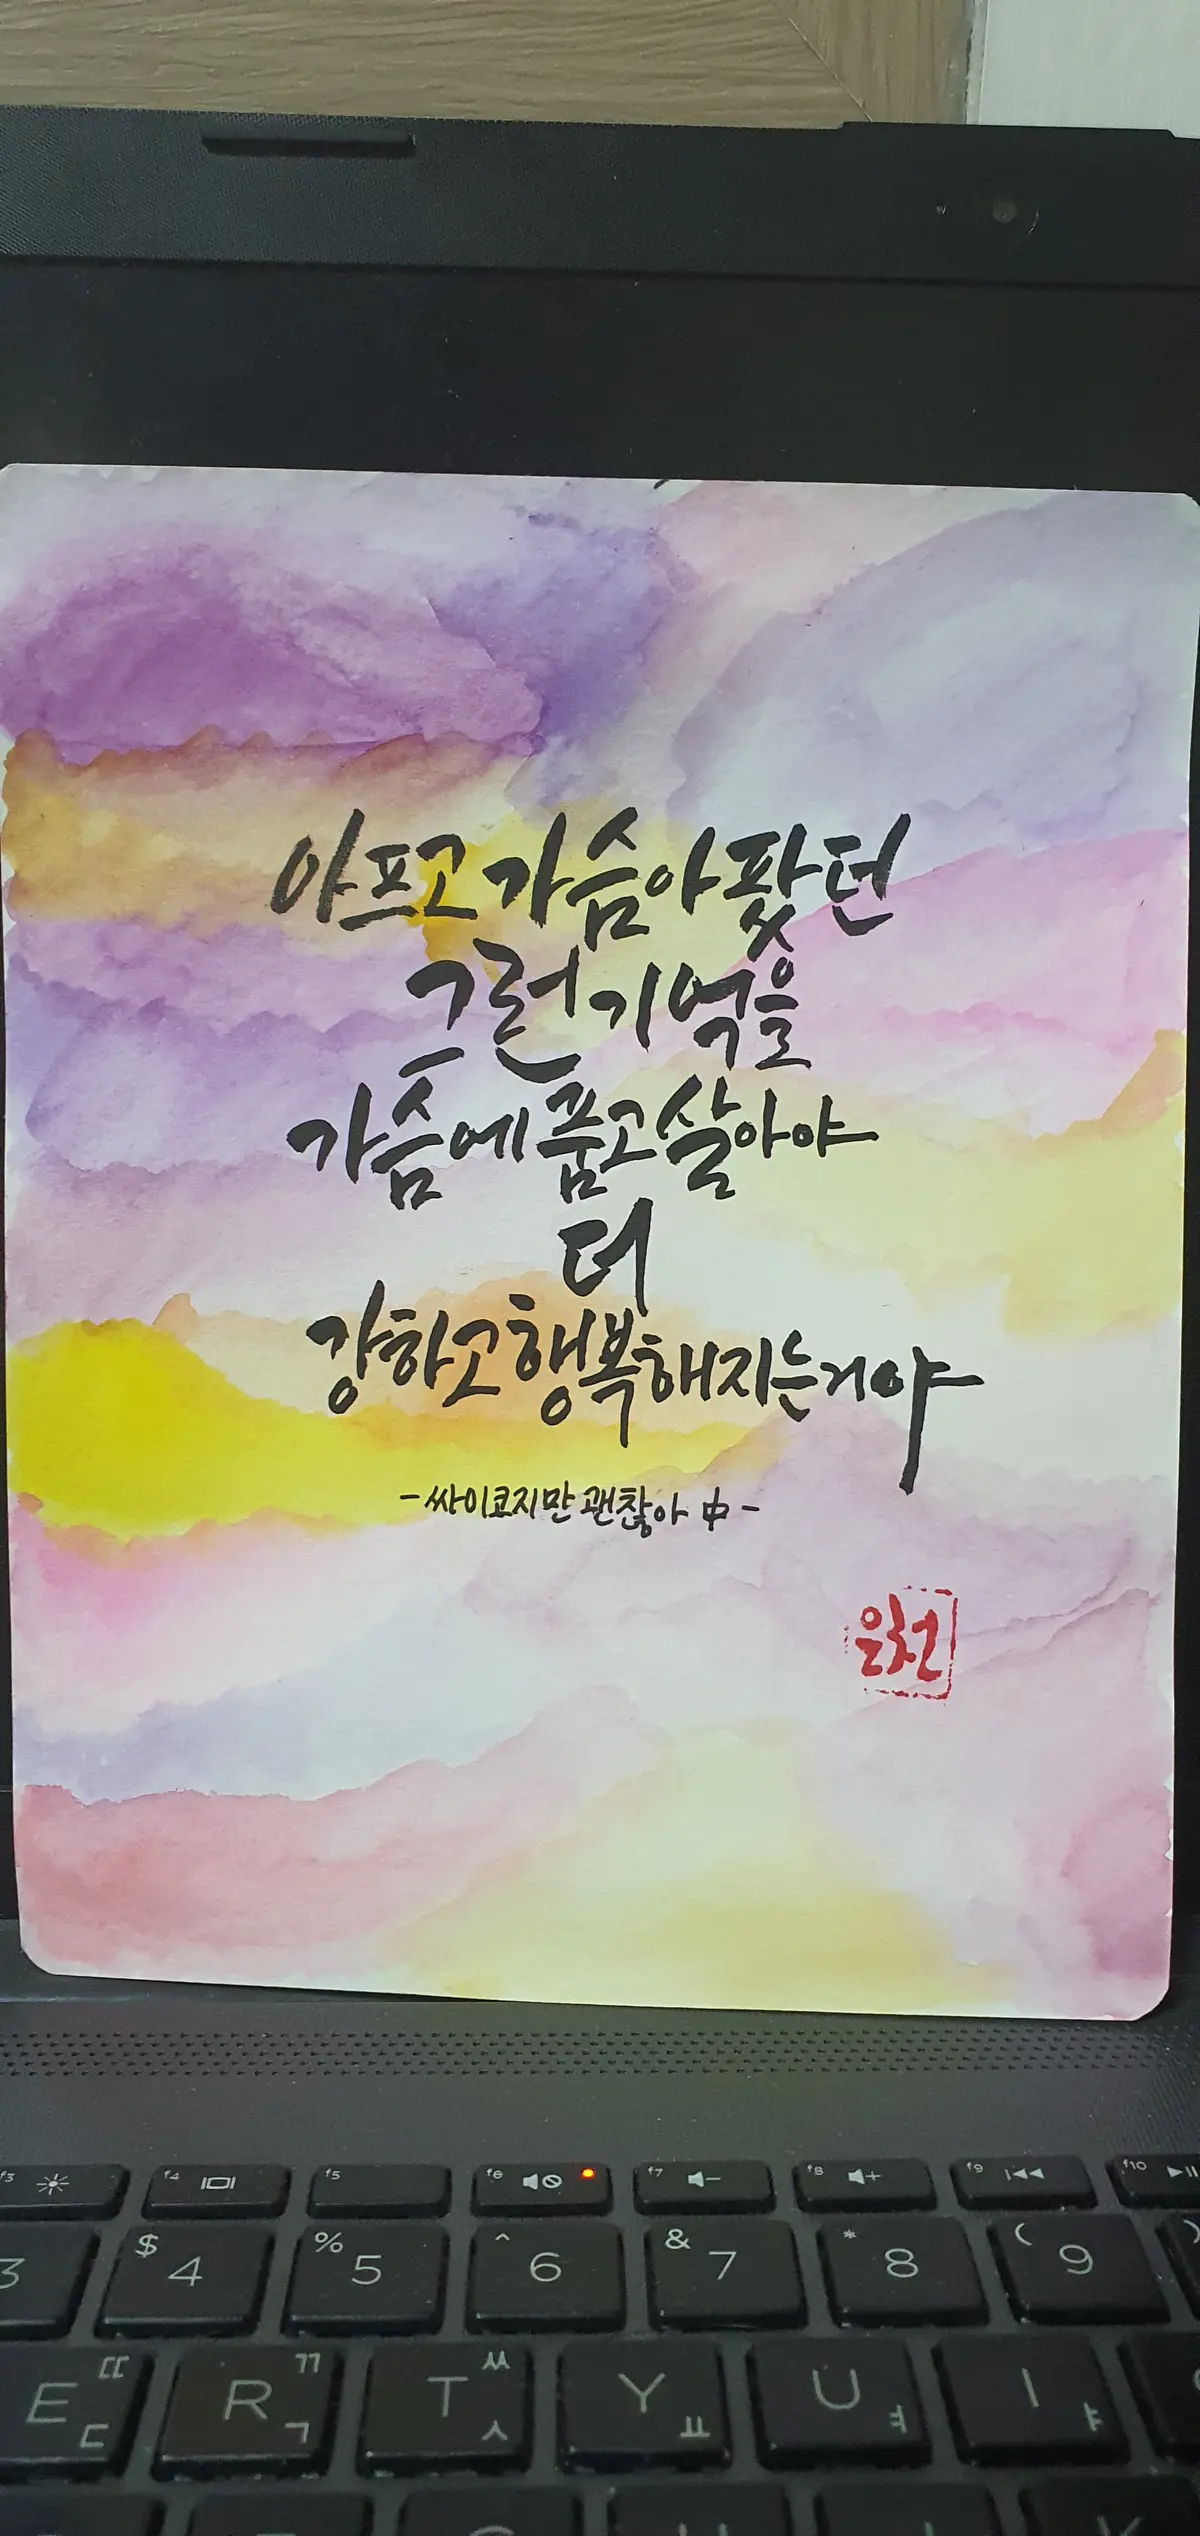 아프고 가슴아팠던
그런 기억을
가슴에 품고 살아야
더
강하고 행복해지는거야
-싸이코지만 괜찮아 中-
은천
f3
f4
f5
f6
f7
f8
f9
f10
3
$ 4
% 5
^ 6
& 7
* 8
( 9
)
E ㄸ ㄷ
R ㄲ ㄱ
T ㅆ ㅅ
Y ㅛ
U ㅕ
I ㅑ